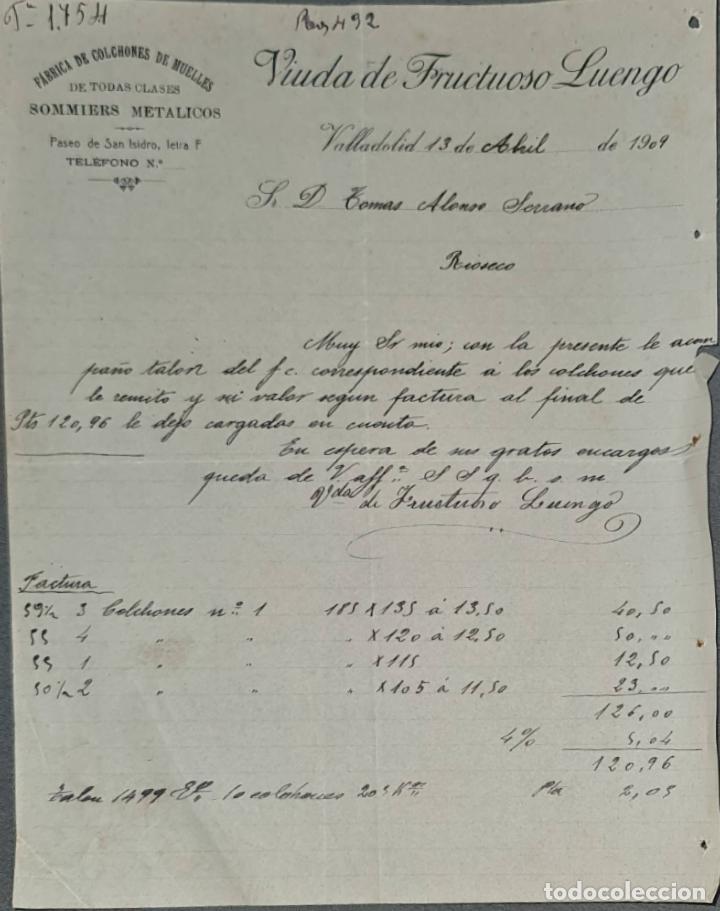 Tº 1.754
492
FÁBRICA DE COLCHONES DE MUELLES
DE TODAS CLASES
SOMMIERS METALICOS
Paseo de San Isidro, letra F
TELÉFONO N.º
Viuda de Fructuoso Luengo
Valladolid 13 de Abril de 1909
Sr. D Tomas Alonso Serrano
Rioseco
Muy Sr mio; con la presente le acom
paño talon del f.c. correspondiente á los colchones que
le remito y su valor segun factura al final de
Pts 120,96 le dejo cargadas en cuenta.
En espera de sus gratos encargos
queda de V. aff.ª S S q. b. s. m
Vda de Fructuoso Luengo
Factura
59½ 3 Colchones nº 1 185 X 135 á 13,50 40,50
55 4 " " " X 120 á 12,50 50,,,
55 1 " " " X 115 12,50
50½ 2 " " " X 105 á 11,50 23,,,
126,00
4% 5,04
120,96
talon 1499 10 colchones 205 Ks 2,05
todocoleccion